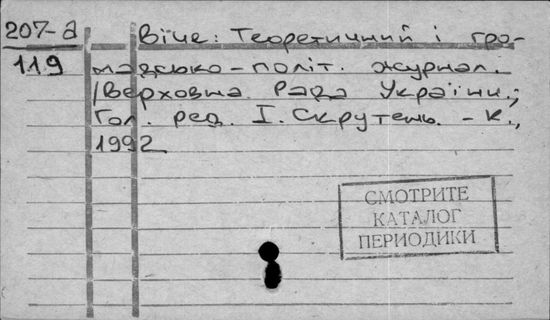 207-а
119
Віче: Теоретичний і гро-
мадсько-політ. журнал.
/Верховна Рада України.;
Гол. ред. І. Скрутень. - К.,
1992
СМОТРИТЕ
КАТАЛОГ
ПЕРИОДИКИ